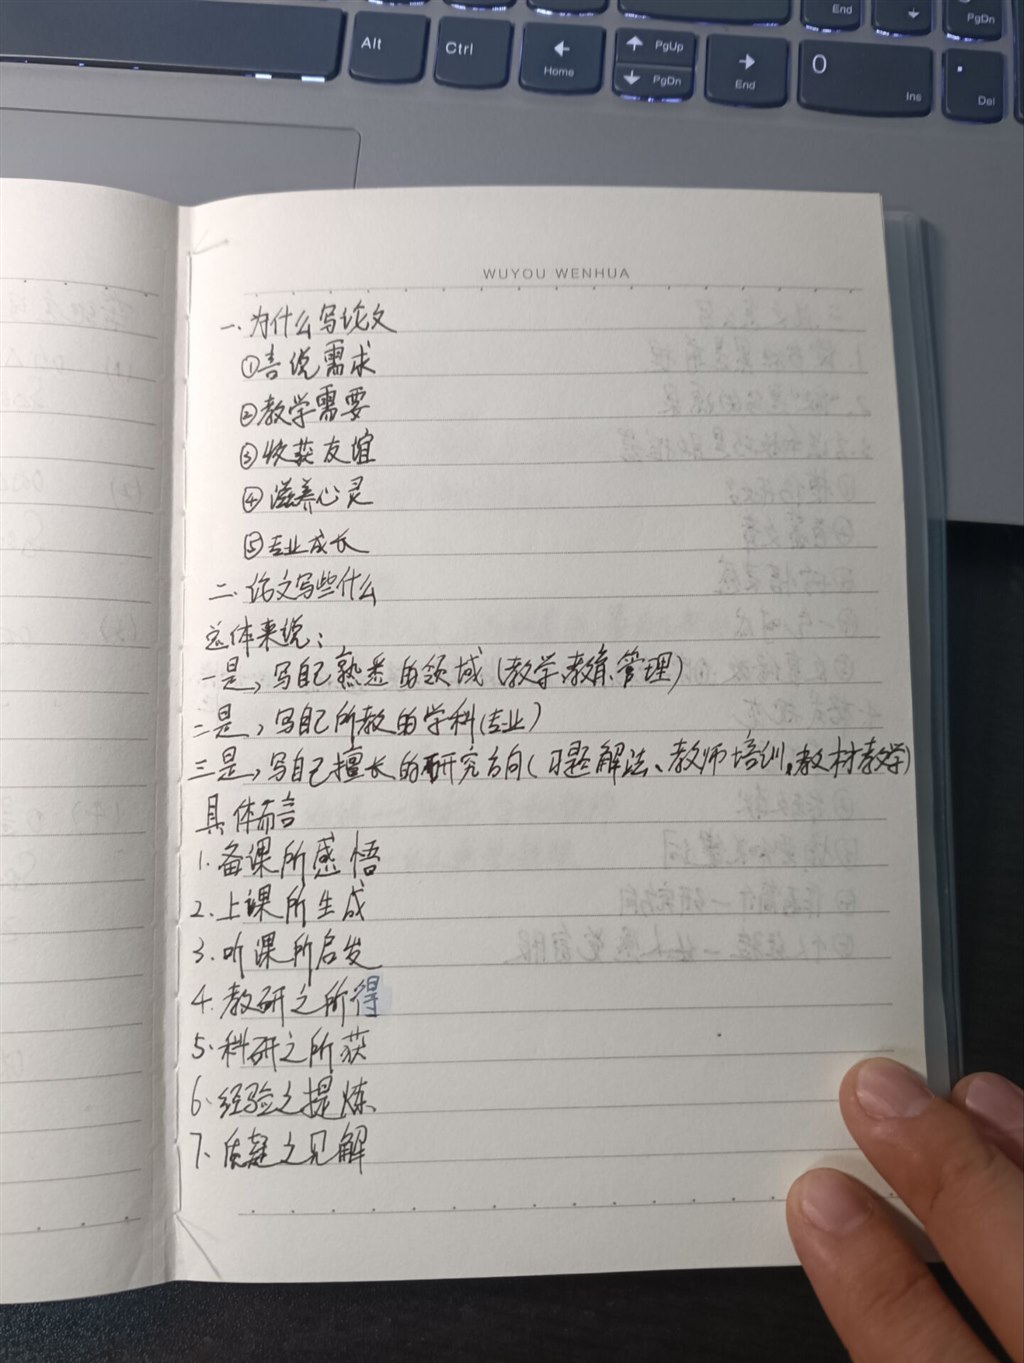 Alt
Ctrl
Home
PgUp
PgDn
End
End
0
Ins
PgDn
.
Del
WUYOU WENHUA
一、为什么写论文
①言说需求
②教学需要
③收获友谊
④滋养心灵
⑤专业成长
二、论文写些什么
总体来说：
一是，写自己熟悉的领域（教学、教育、管理）
二是，写自己所教的学科（专业）
三是，写自己擅长的研究方向（习题解法、教师培训，教材教学）
具体而言
1.备课所感悟
2.上课所生成
3.听课所启发
4.教研之所得
5.科研之所获
6.经验之提炼
7.质疑之见解